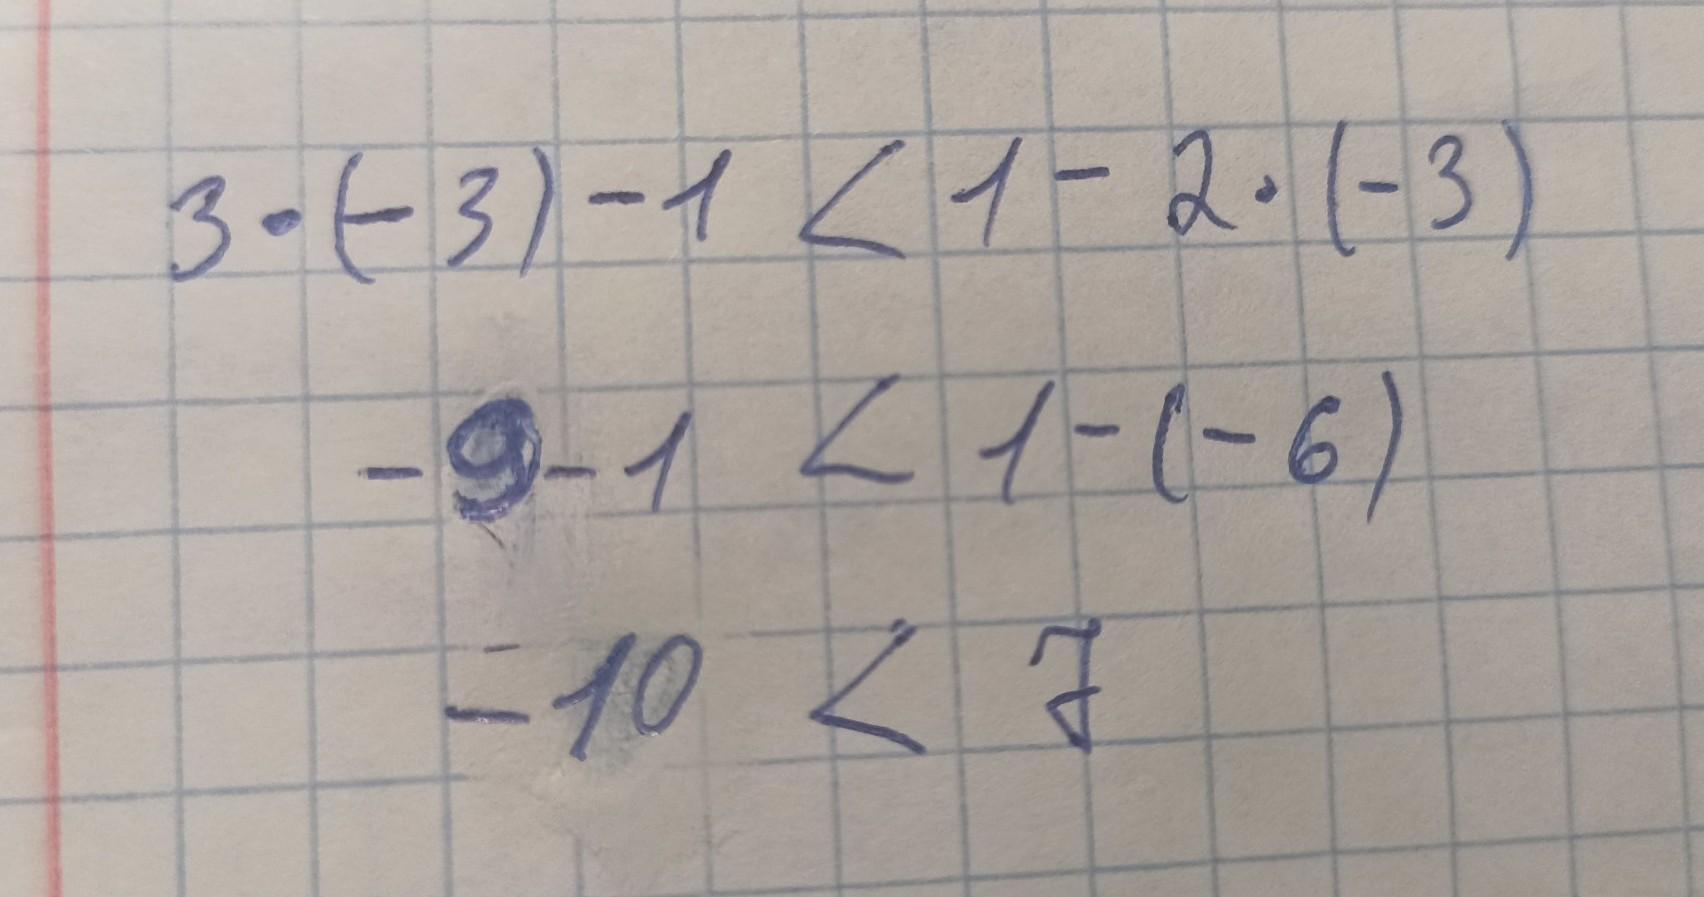 3 · (-3) - 1 < 1 - 2 · (-3)
-9 - 1 < 1 - (-6)
-10 < 7